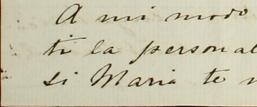 A mi modo
ti la personal
si Maria te